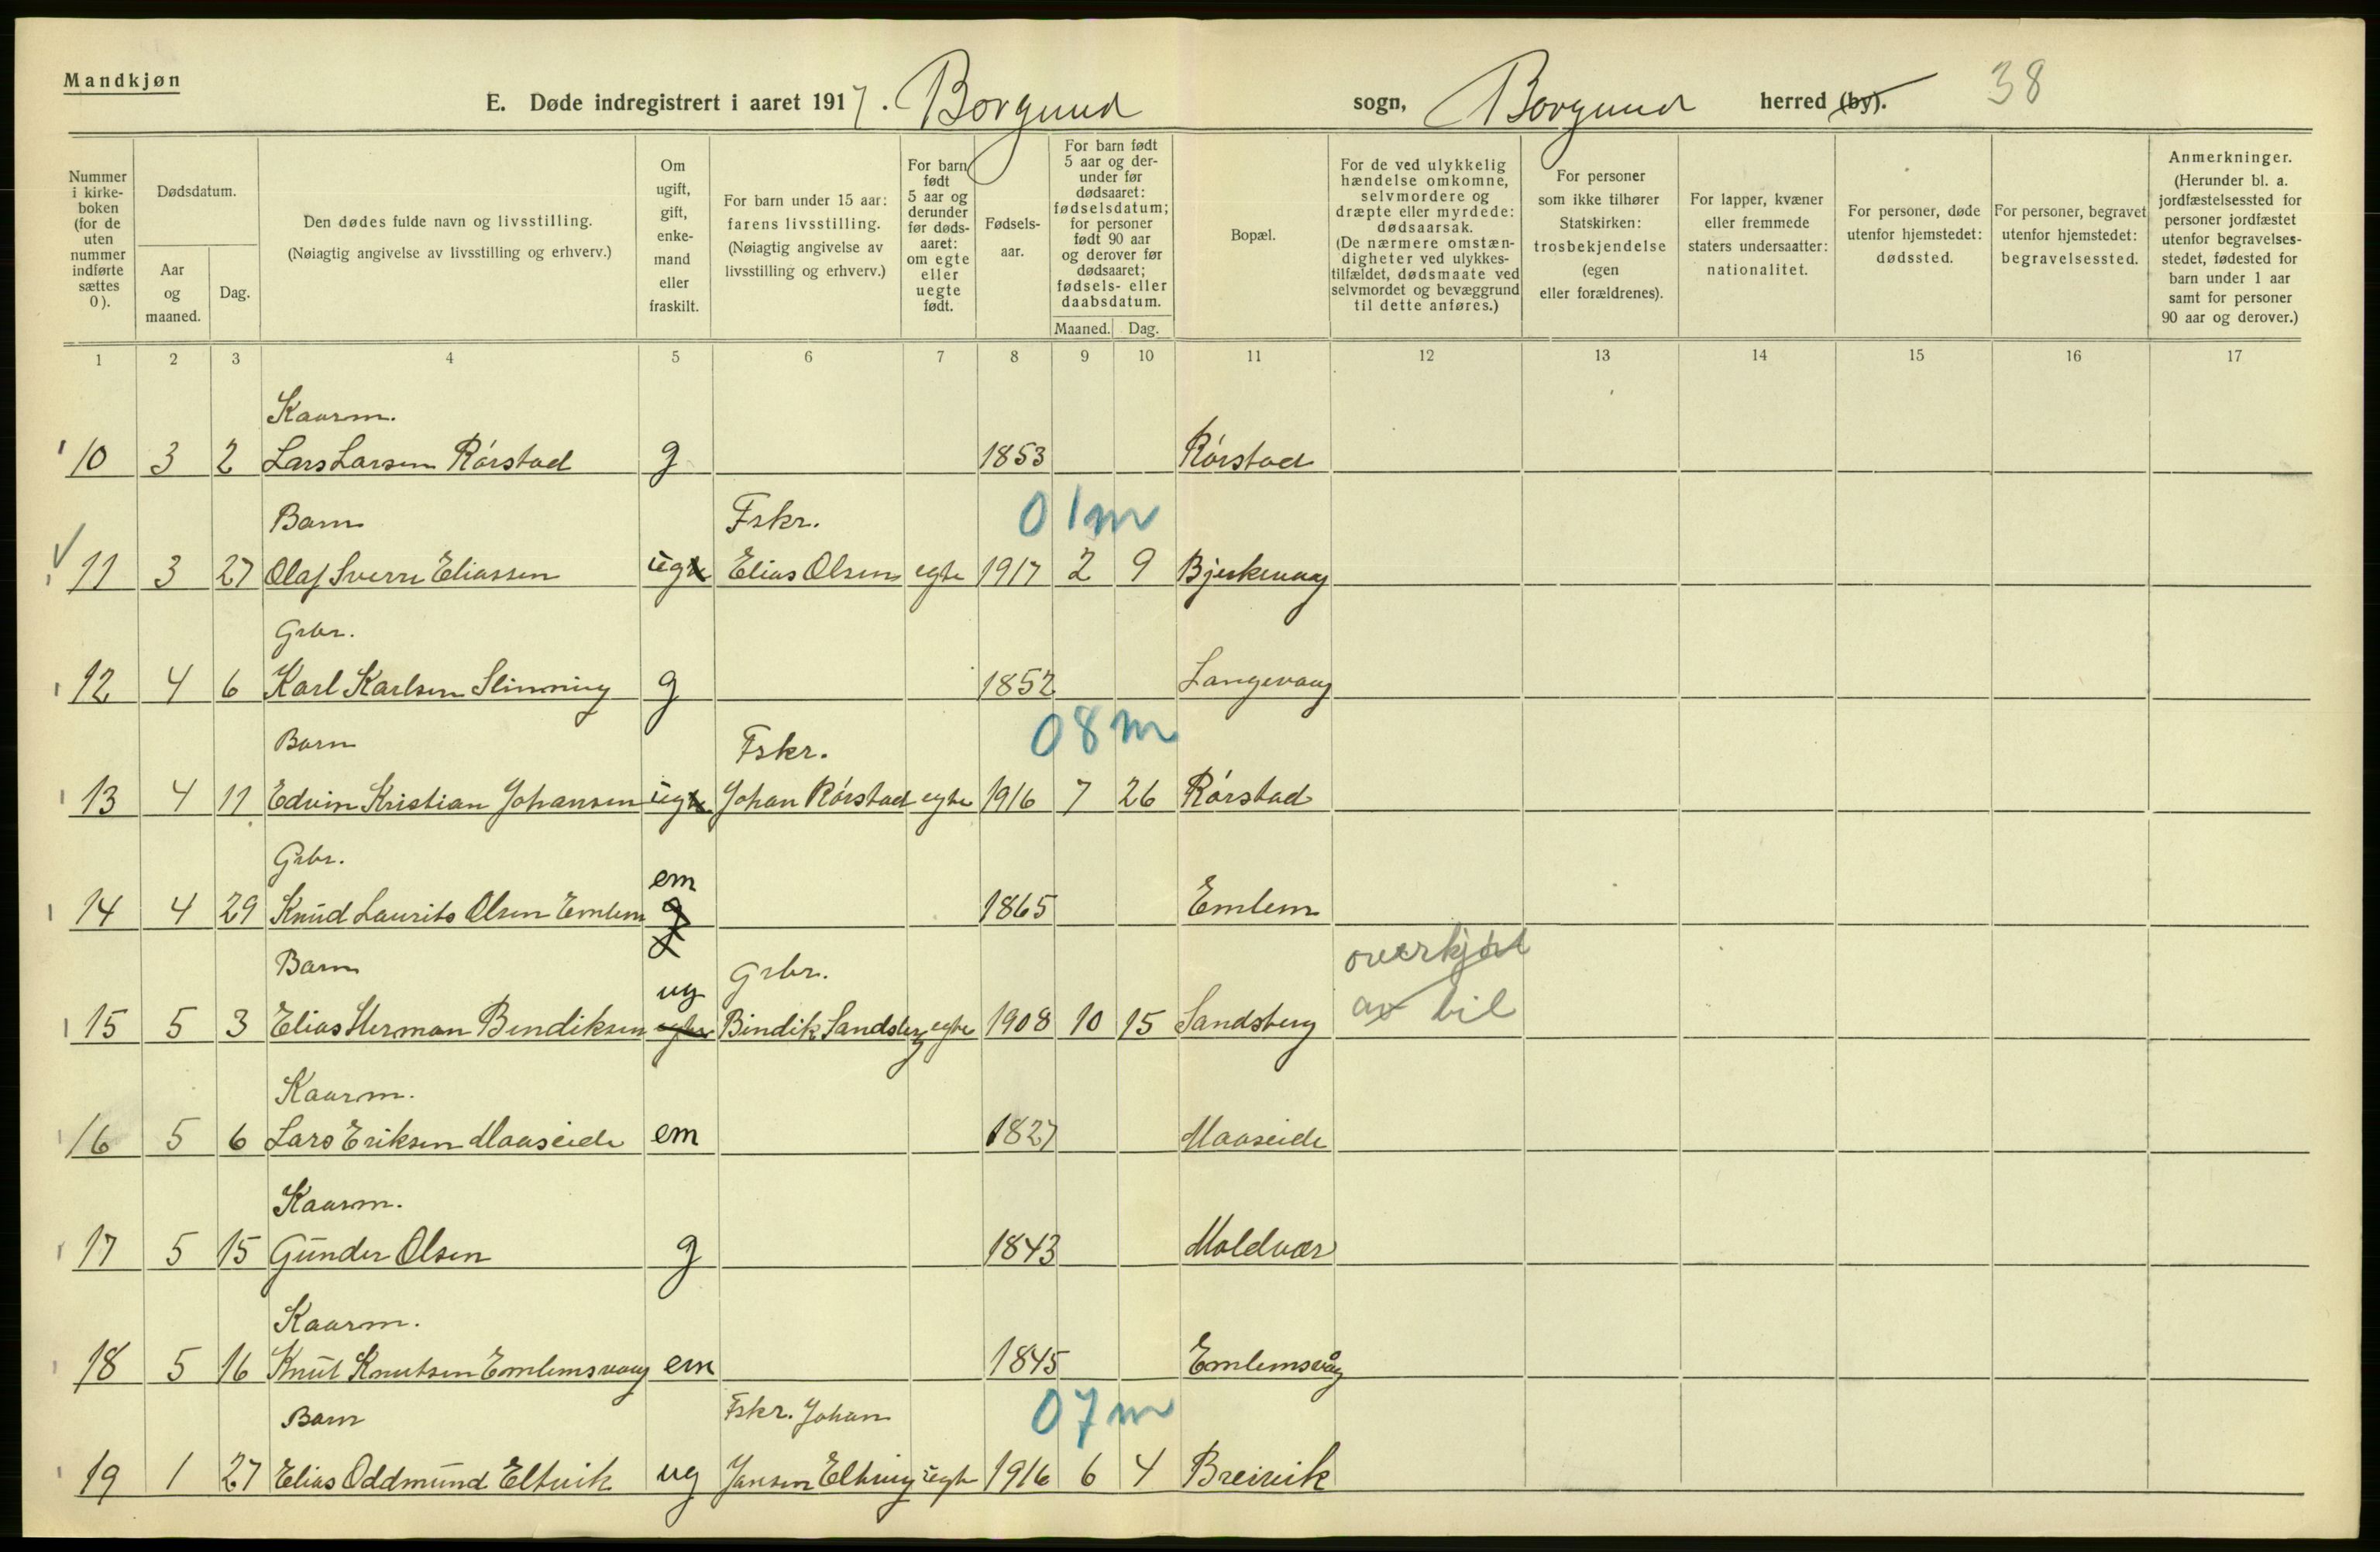 Mandkjøn
E. Døde indregistrert i aaret 1917. Borgund sogn, Borgund herred (by). 38
Nummer i kirke-boken (for de uten nummer indførte sættes 0).
Dødsdatum.
Aar og maaned.
Dag.
Den dødes fulde navn og livsstilling.
(Nøiagtig angivelse av livsstilling og erhverv.)
Om ugift, gift, enke-mand eller fraskilt.
For barn under 15 aar: farens livsstilling.
(Nøiagtig angivelse av livsstilling og erhverv.)
For barn født 5 aar og derunder før døds-aaret: om egte eller uegte født.
Fødsels-aar.
For barn født 5 aar og der-under før dødsaaret: fødselsdatum; for personer født 90 aar og derover før dødsaaret; fødsels- eller daabsdatum.
Maaned. Dag.
Bopæl.
For de ved ulykkelig hændelse omkomne, selvmordere og dræpte eller myrdede: dødsaarsak.
(De nærmere omstæn-digheter ved ulykkes-tilfældet, dødsmaate ved selvmordet og bevæggrund til dette anføres.)
For personer som ikke tilhører Statskirken: trosbekjendelse (egen eller forældrenes).
For lapper, kvæner eller fremmede staters undersaatter: nationalitet.
For personer, døde utenfor hjemstedet: dødssted.
For personer, begravet utenfor hjemstedet: begravelsessted.
Anmerkninger.
(Herunder bl. a. jordfæstelsessted for personer jordfæstet utenfor begravelses-stedet, fødested for barn under 1 aar samt for personer 90 aar og derover.)
1 2 3 4 5 6 7 8 9 10 11 12 13 14 15 16 17
Kaarm.
10 3 2 Lars Larsen Rørstad g 1853 Rørstad
Barn Fskr. 01m
11 3 27 Olaf Sverre Eliassen ug Elias Olsen egte 1917 2 9 Bjerkevaag
Grbr.
12 4 6 Karl Karlsen Slinning g 1852 Langevaag
Barn Fskr. 08m
13 4 11 Edvin Kristian Johansen ug Johan Rørstad egte 1916 7 26 Rørstad
Grbr. em
14 4 29 Knud Laurits Olsen Emlem g 1865 Emlem
Barn ug Grbr. overkjørt
15 5 3 Elias Herman Bendiksen egte Bindik Sandsberg egte 1908 10 15 Sandsberg av bil
Kaarm.
16 5 6 Lars Eriksen Maaseide em 1827 Maaseide
Kaarm.
17 5 15 Gunder Olsen g 1843 Moldvær
Kaarm.
18 5 16 Knut Knutsen Emlemsvaag em 1845 Emlemsvåg
Barn Fskr. Johan 07m
19 1 27 Elias Oddmund Eltvik ug Jansen uegte 1916 6 4 Breivik